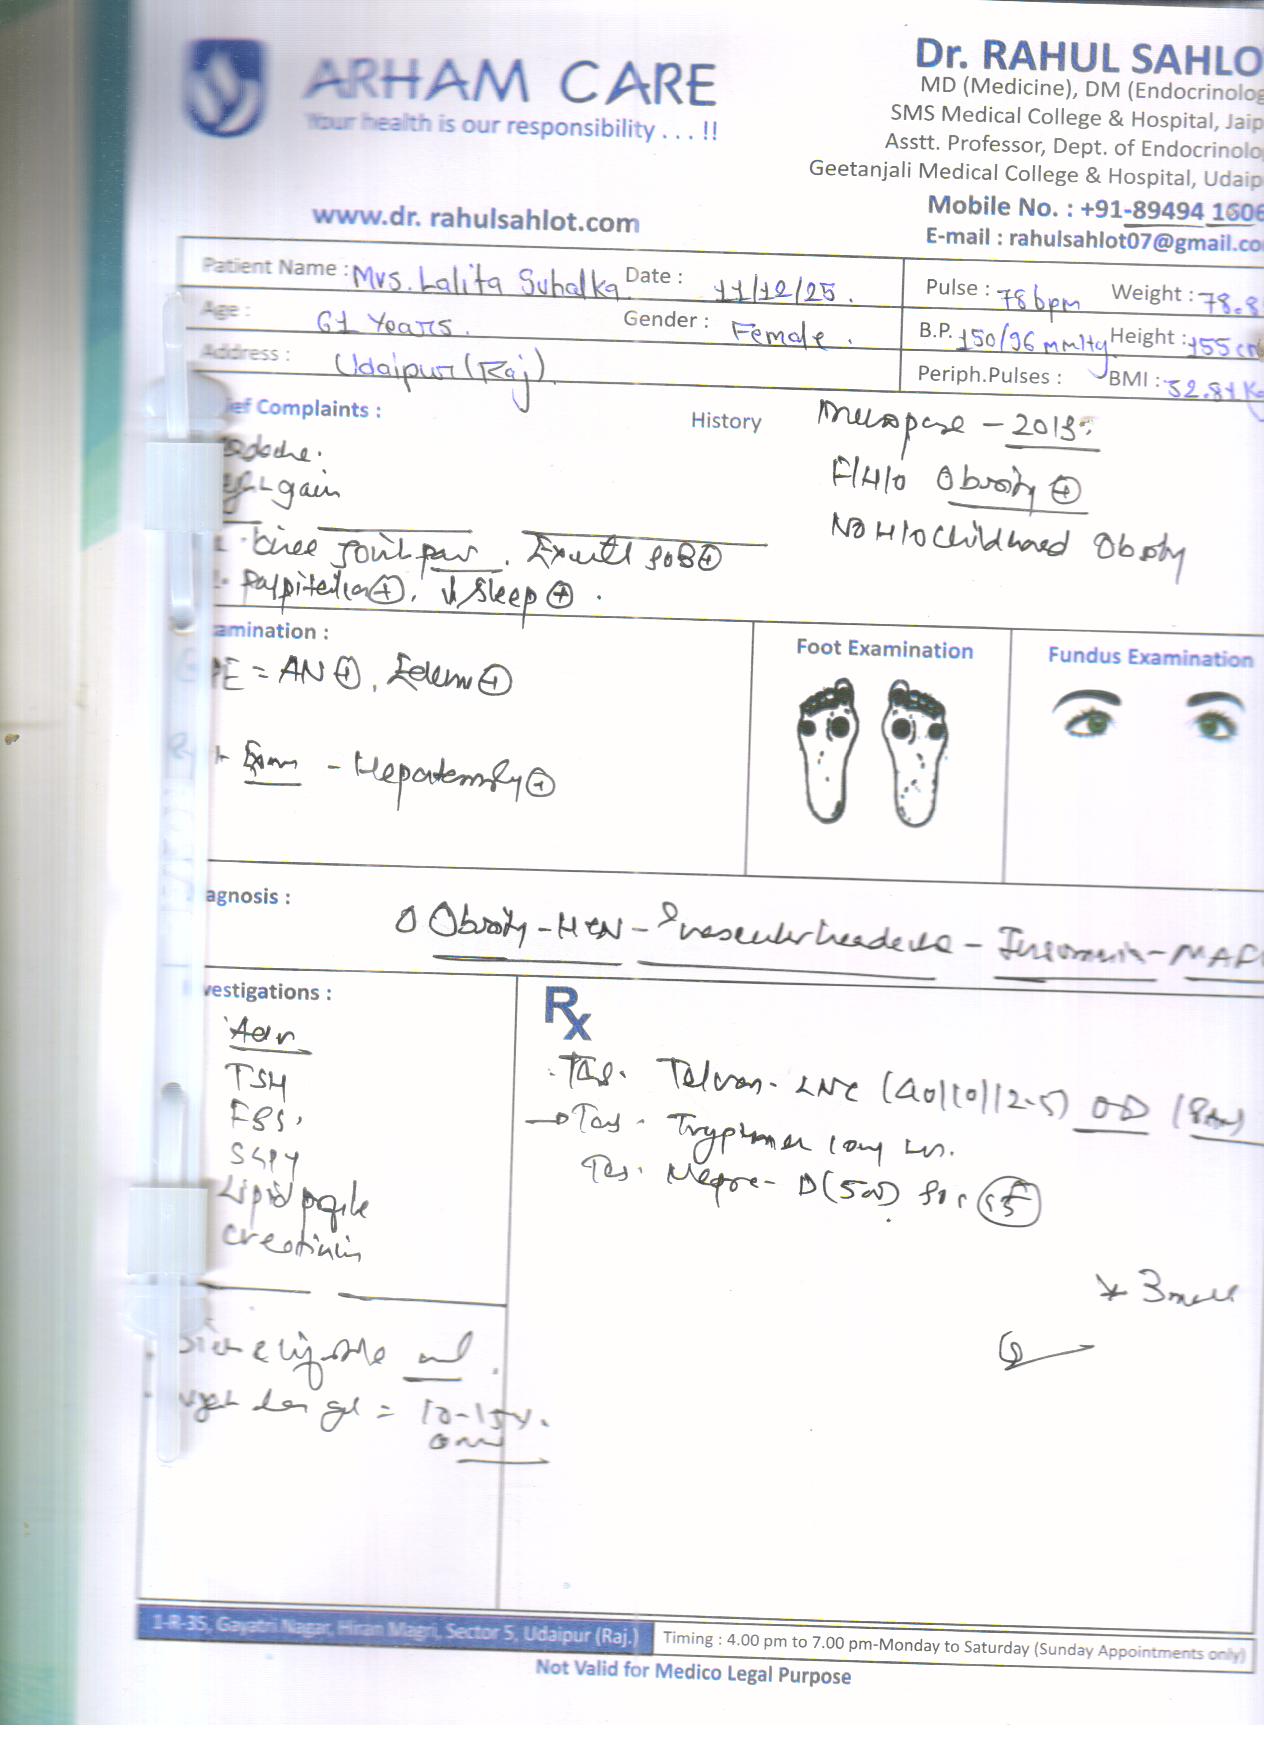 ARHAM CARE
Your health is our responsibility . . . !!
www.dr. rahulsahlot.com
Dr. RAHUL SAHLO
MD (Medicine), DM (Endocrinolog
SMS Medical College & Hospital, Jaip
Asstt. Professor, Dept. of Endocrinolo
Geetanjali Medical College & Hospital, Udaip
Mobile No. : +91-89494 1606
E-mail : rahulsahlot07@gmail.co
Patient Name : Mrs. Lalita Suhalka Date : 11/12/25. Pulse : 78 bpm Weight : 78.8
Age : 61 Years. Gender : Female. B.P. 150/96 mmHg Height : 155 cm
Address : Udaipur (Raj) Periph.Pulses : BMI : 32.81 K
ief Complaints :
History
Menopause - 2013
F/H/o Obesity +
No H/o Childhood Obesity
gain
knee joint pain. SOB +
Palpitation +, ↓ Sleep +.
amination :
PE = AN +, Edema +
Exam - Hepatomegaly +
Foot Examination
Fundus Examination
agnosis :
Obesity - HTN - vascular headache - Insomnia - MAF
vestigations :
TSH
FBS,
SGPT
Lipid profile
Creatinin
Rx
Tab. Telvas- LNC (40/10/12.5) OD (8am)
→ Tab. Tryptomer 10mg
Tab. D (500)
= 10-15%.
1-R-35, Gayatri Nagar, Hiran Magri, Sector 5, Udaipur (Raj.)
Timing : 4.00 pm to 7.00 pm-Monday to Saturday (Sunday Appointments only)
Not Valid for Medico Legal Purpose